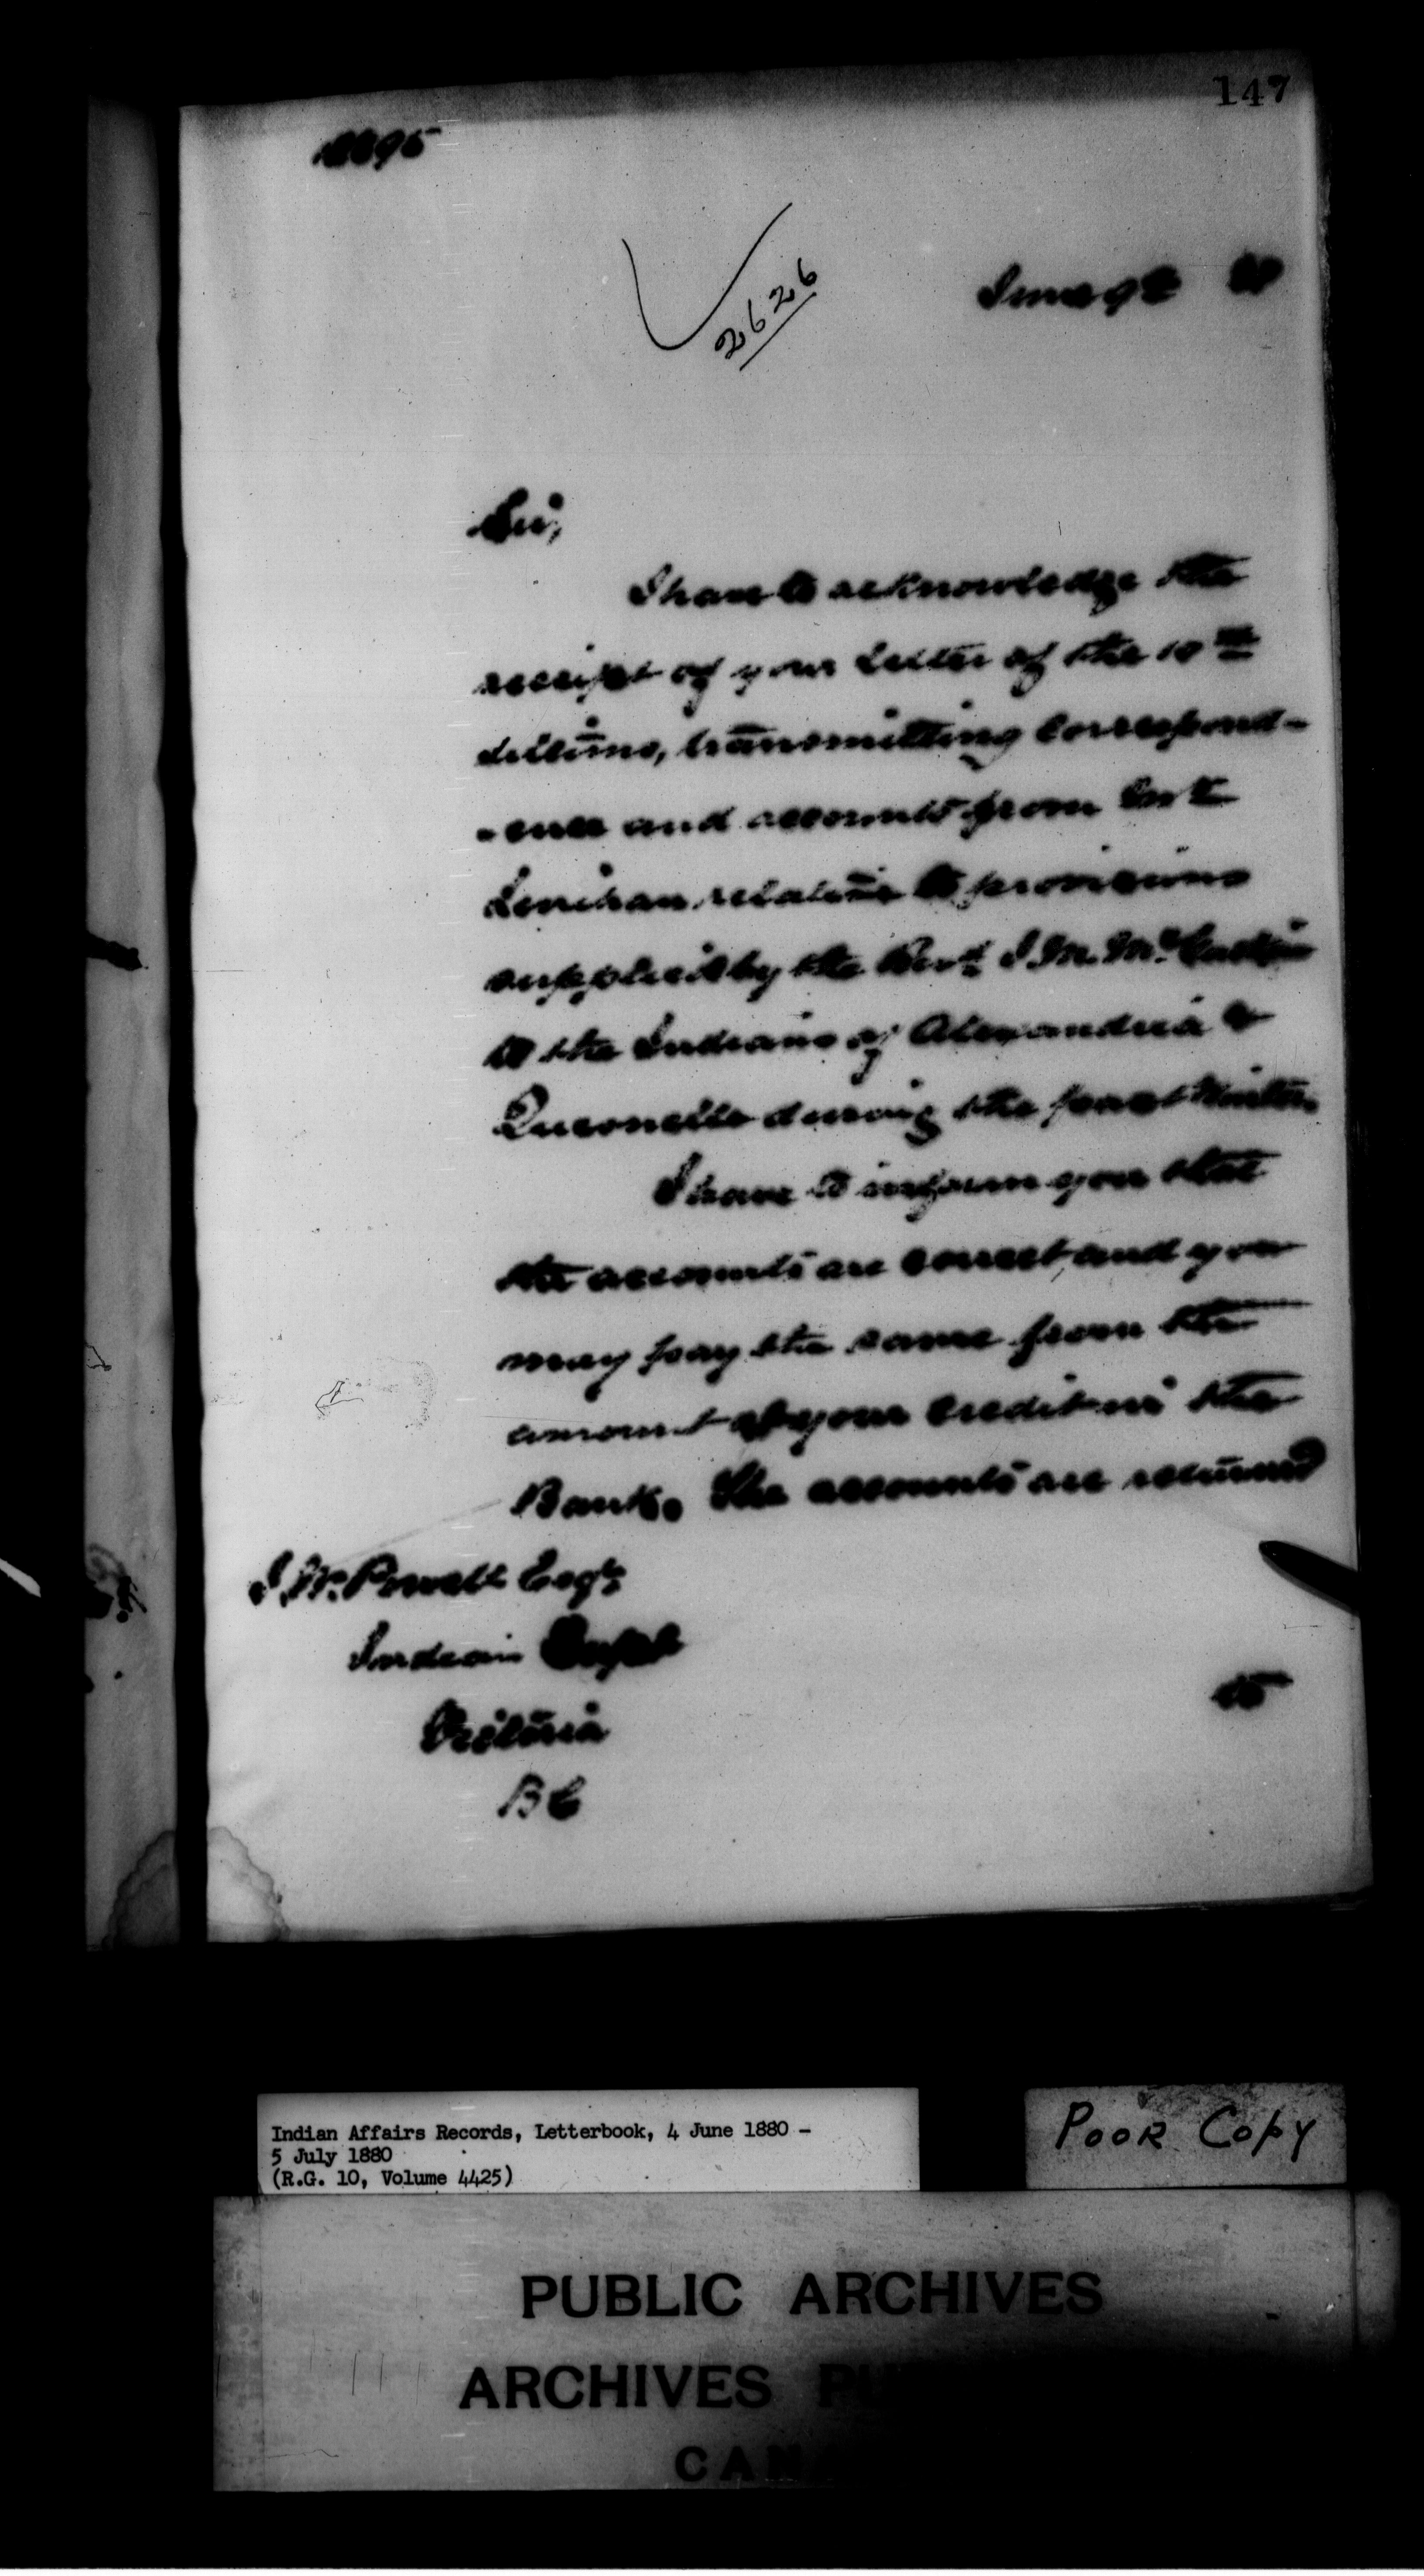 147
2626
Sir,
I have to acknowledge the
receipt of your letter of the 10th
ultimo, transmitting correspond-
-ence and accounts from
Lenihan relative to provisions
supplied by the Revd
to the Indians of Alexandria &
Quesnelle during the past Winter.
I have to inform you that
the accounts are correct, and you
may pay the same from the
amount at your credit in the
Bank. The accounts are returned
I. W. Powell Esqre
Indian Supt
Victoria
B C
to
Indian Affairs Records, Letterbook, 4 June 1880 -
5 July 1880
(R.G. 10, Volume 4425)
POOR Copy
PUBLIC ARCHIVES
ARCHIVES PU
CANA